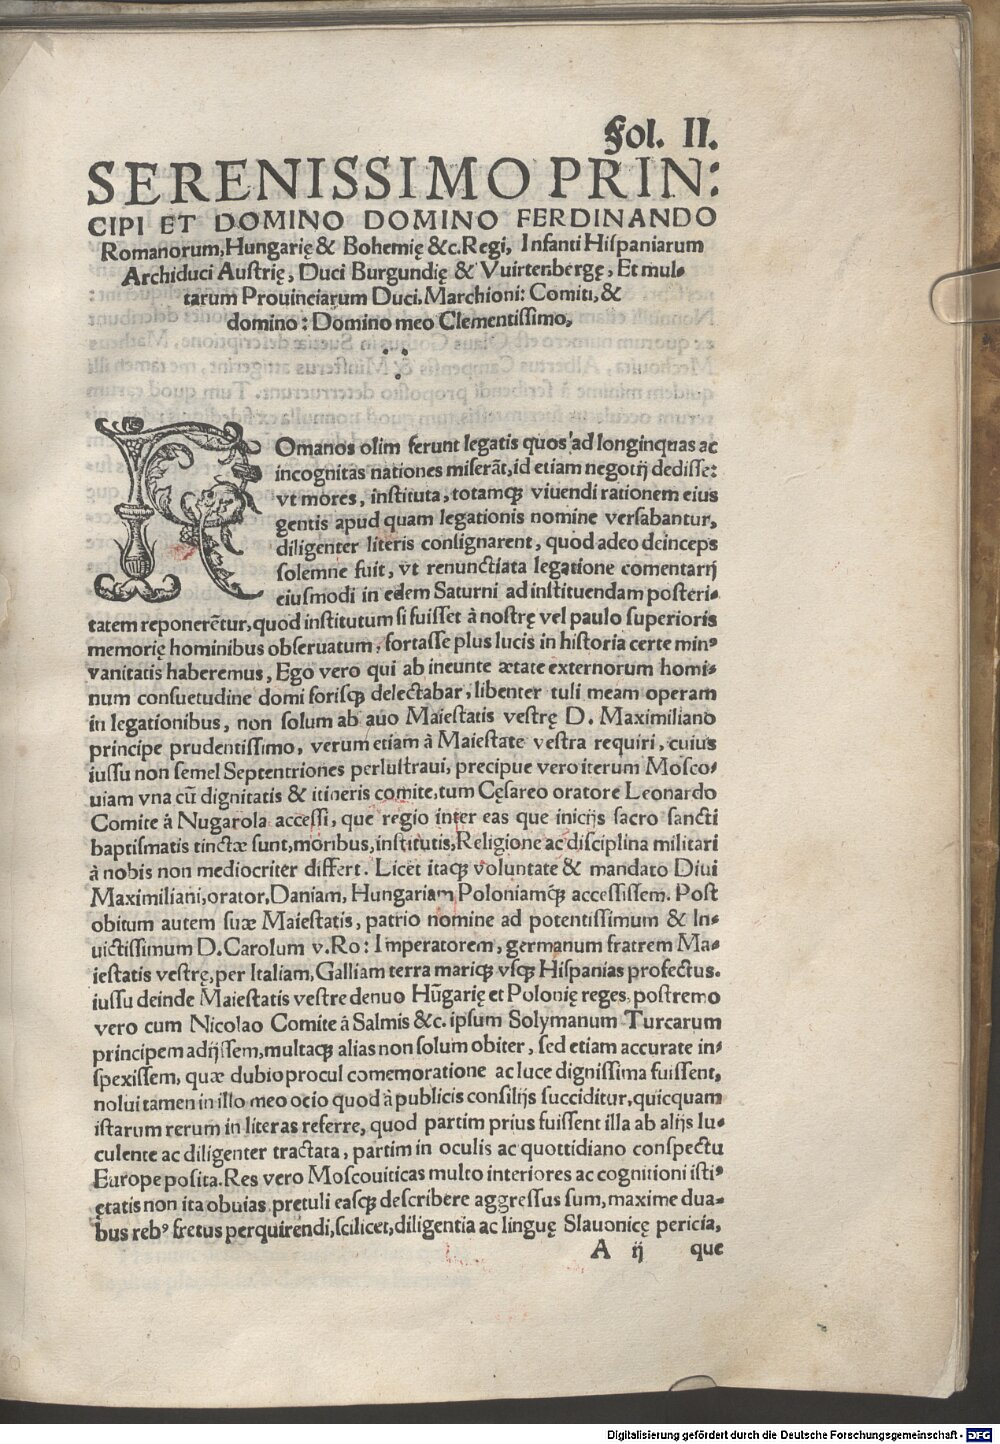 Fol. II.
SERENISSIMO PRIN:
CIPI ET DOMINO DOMINO FERDINANDO
Romanorum, Hungarię & Bohemię &c. Regi, Infanti Hiſpaniarum
Archiduci Auſtrię, Duci Burgundię & Vuirtenbergę, Et mul-
tarum Prouinciarum Duci, Marchioni: Comiti, &
domino: Domino meo Clementiſſimo,
ROmanos olim ferunt legatis quos ad longinquas ac
incognitas nationes miſerāt, id etiam negotij dediſſe:
vt mores, inſtituta, totamqꝫ viuendi rationem eius
gentis apud quam legationis nomine verſabantur,
diligenter literis conſignarent, quod adeo deinceps
ſolemne fuit, vt renunctiata legatione comentarij
eiuſmodi in edem Saturni ad inſtituendam poſteri-
tatem reponerētur, quod inſtitutum ſi fuiſſet à noſtrę vel paulo ſuperioris
memorię hominibus obſeruatum, fortaſſe plus lucis in hiſtoria certe minꝰ
vanitatis haberemus, Ego vero qui ab ineunte ætate externorum homi-
num conſuetudine domi foriſqꝫ delectabar, libenter tuli meam operam
in legationibus, non ſolum ab auo Maieſtatis veſtrę D. Maximiliano
principe prudentiſſimo, verum etiam à Maieſtate veſtra requiri, cuius
iuſſu non ſemel Septentriones perluſtraui, precipue vero iterum Moſco-
uiam vna cū dignitatis & itineris comite, tum Cęſareo oratore Leonardo
Comite à Nugarola acceſſi, que regio inter eas que inicijs ſacro ſancti
baptiſmatis tinctæ ſunt, moribus, inſtitutis, Religione ac diſciplina militari
à nobis non mediocriter differt. Licet itaqꝫ voluntate & mandato Diui
Maximiliani, orator, Daniam, Hungariam Poloniamqꝫ acceſſiſſem. Poſt
obitum autem ſuæ Maieſtatis, patrio nomine ad potentiſſimum & In-
uictiſſimum D. Carolum v. Ro: Imperatorem, germanum fratrem Ma-
ieſtatis veſtrę, per Italiam, Galliam terra mariqꝫ vſqꝫ Hiſpanias profectus.
iuſſu deinde Maieſtatis veſtre denuo Hūgarię et Polonię reges, poſtremo
vero cum Nicolao Comite à Salmis &c. ipſum Solymanum Turcarum
principem adijſſem, multaqꝫ alias non ſolum obiter, ſed etiam accurate in-
ſpexiſſem, quæ dubio procul comemoratione ac luce digniſſima fuiſſent,
nolui tamen in illo meo ocio quod à publicis conſilijs ſucciditur, quicquam
iſtarum rerum in literas referre, quod partim prius fuiſſent illa ab alijs lu-
culente ac diligenter tractata, partim in oculis ac quottidiano conſpectu
Europe poſita. Res vero Moſcouiticas multo interiores ac cognitioni iſti⸗
ętatis non ita obuias pretuli eaſqꝫ deſcribere aggreſſus ſum, maxime dua-
bus rebꝰ fretus perquirendi, ſcilicet, diligentia ac linguę Slauonicę pericia,
A ij que
Digitalisierung gefördert durch die Deutsche Forschungsgemeinschaft - DFG